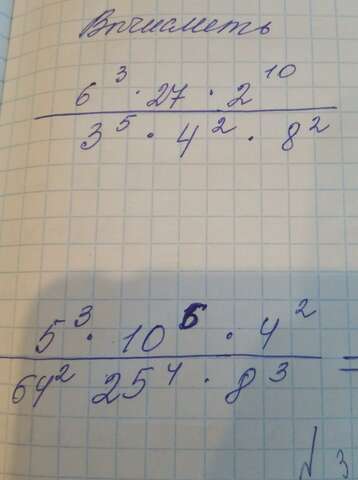 Вычислить
6³ · 27 · 2¹⁰
3⁵ · 4² · 8²
5³ · 10⁵ · 4²
64² 25⁴ · 8³ =
№ 3